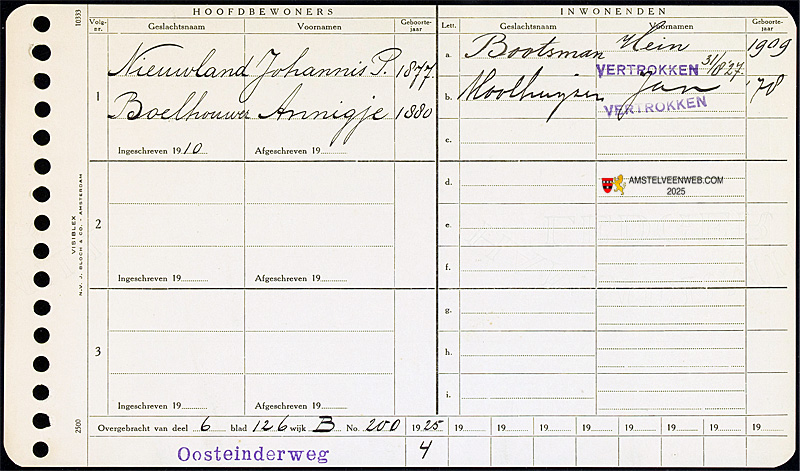 HOOFDBEWONERS
INWONENDEN
Volg-nr.
Geslachtsnaam
Voornamen
Geboorte-jaar
Lett.
Geslachtsnaam
Voornamen
Geboorte-jaar
1
Nieuwland Johannis P. 1877.
Boelhouwer Annigje 1880
Ingeschreven 1910
Afgeschreven 19
a. Bootsman Hein 1909
VERTROKKEN 31/8'27.
b. Moolhuijsen Jan '78
VERTROKKEN
c.
2
Ingeschreven 19
Afgeschreven 19
d.
AMSTELVEENWEB.COM
2025
e.
f.
3
Ingeschreven 19
Afgeschreven 19
g.
h.
i.
Overgebracht van deel 6 blad 126 wijk B No. 200 1925 19 19 19 19 19 19 19 19
Oosteinderweg 4
10333
VISIBLEX
N.V. J. BLOCH & CO. - AMSTERDAM
2500